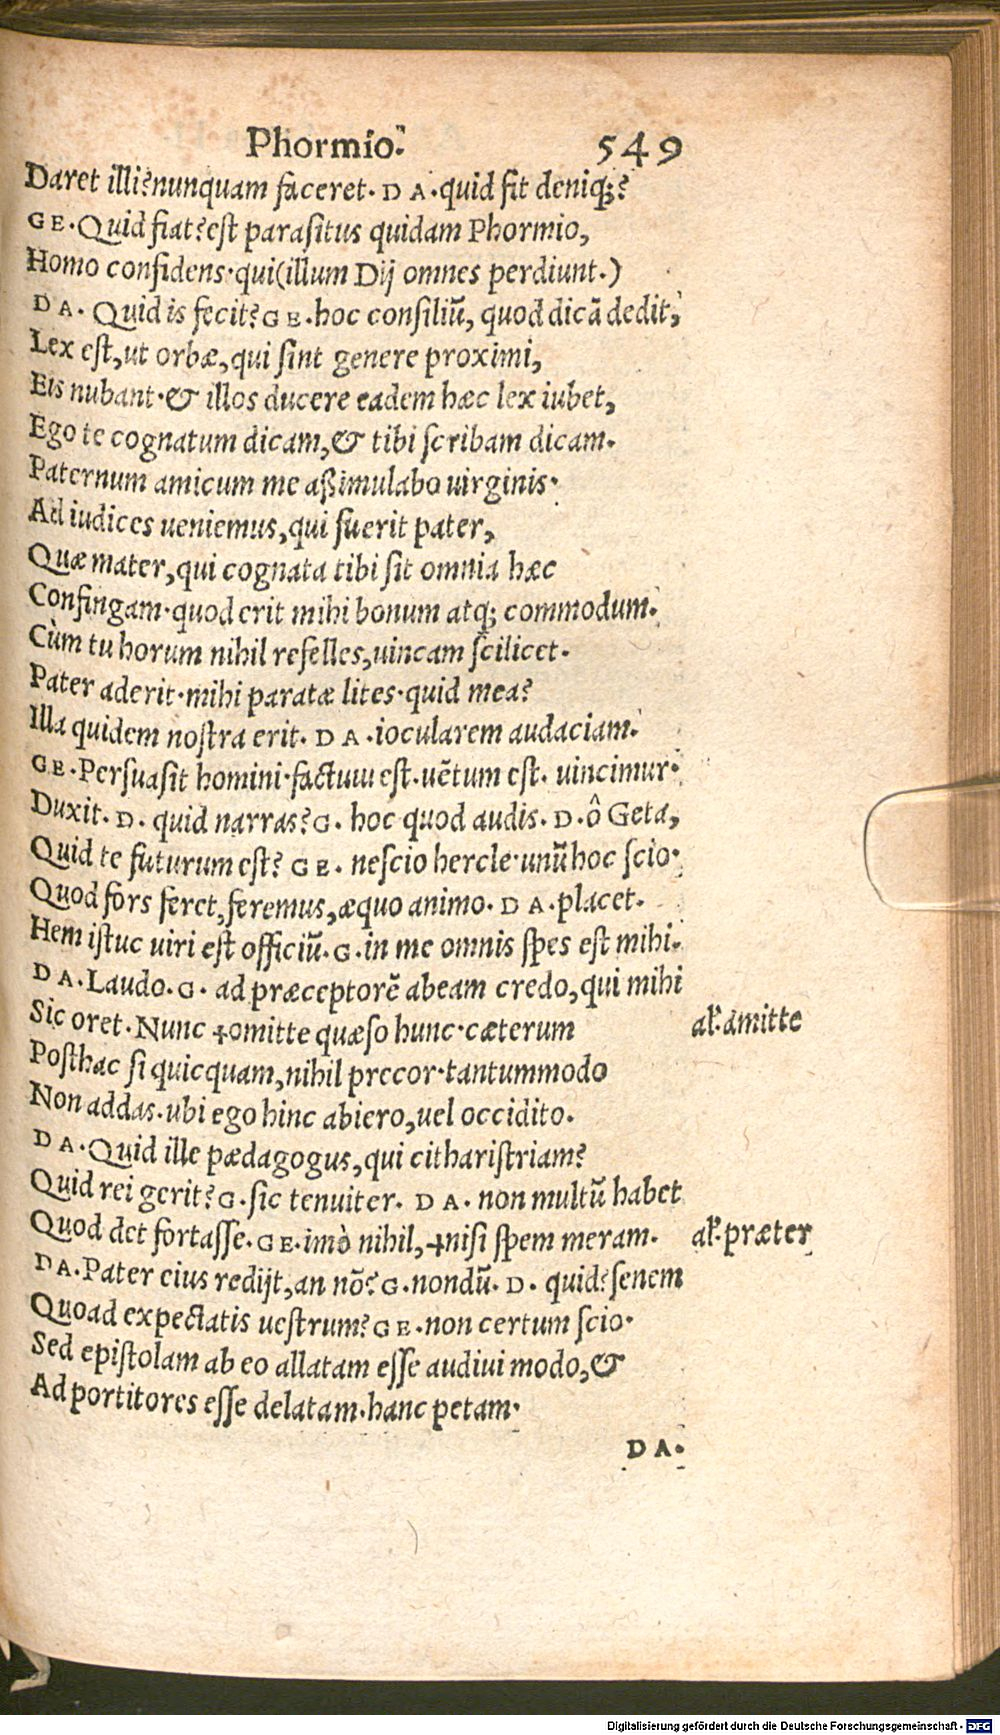 Phormio. 549
Daret illi? nunquam faceret. DA. quid fit deniq;?
GE. Quid fiat? est parasitus quidam Phormio,
Homo confidens. qui (illum Dij omnes perdiunt.)
DA. Quid is fecit? GE. hoc consiliũ, quod dicã dedit,
Lex est, ut orbæ, qui sint genere proximi,
Eis nubant. & illos ducere eadem hæc lex iubet,
Ego te cognatum dicam, & tibi scribam dicam.
Paternum amicum me aßimulabo uirginis.
Ad iudices ueniemus, qui fuerit pater,
Quæ mater, qui cognata tibi sit omnia hæc
Confingam. quod erit mihi bonum atq; commodum.
Cùm tu horum nihil refelles, uincam scilicet.
Pater aderit. mihi paratæ lites. quid mea?
Illa quidem nostra erit. DA. iocularem audaciam.
GE. Persuasit homini. factum est. uẽtum est. uincimur.
Duxit. D. quid narras? G. hoc quod audis. D. ô Geta,
Quid te futurum est? GE. nescio hercle. unũ hoc scio.
Quod fors feret, feremus, æquo animo. DA. placet.
Hem istuc uiri est officiũ. G. in me omnis spes est mihi.
DA. Laudo. G. ad præceptorẽ abeam credo, qui mihi
Sic oret. Nunc +omitte quæso hunc. cæterum al. amitte
Posthac si quicquam, nihil precor. tantummodo
Non addas. ubi ego hinc abiero, uel occidito.
DA. Quid ille pædagogus, qui citharistriam?
Quid rei gerit? G. sic tenuiter. DA. non multũ habet
Quod det fortasse. GE. imò nihil, +nisi spem meram. al. præter
DA. Pater eius redijt, an nõ? G. nondũ. D. quid? senem
Quoad expectatis uestrum? GE. non certum scio.
Sed epistolam ab eo allatam esse audiui modo, &
Ad portitores esse delatam. hanc petam.
DA.
Digitalisierung gefördert durch die Deutsche Forschungsgemeinschaft - DFG